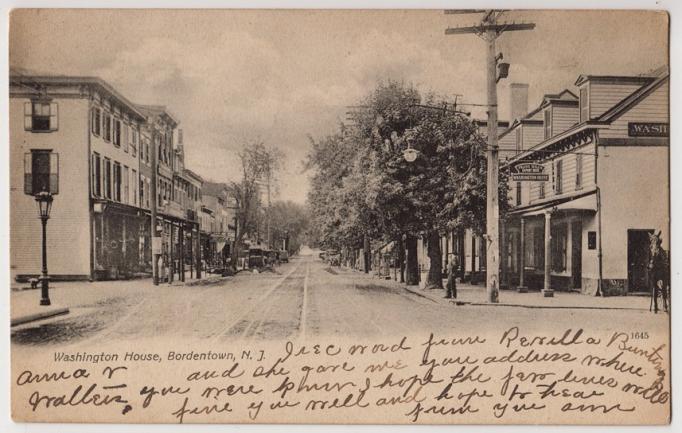 WASH
WASHINGTON HOUSE
1645
Washington House, Bordentown, N. J.
I rec word from Rewilla Bunting
anna v and she gave me you address where
Walters, you were known I hope the few lines will
fine you well and hope to hear
from you